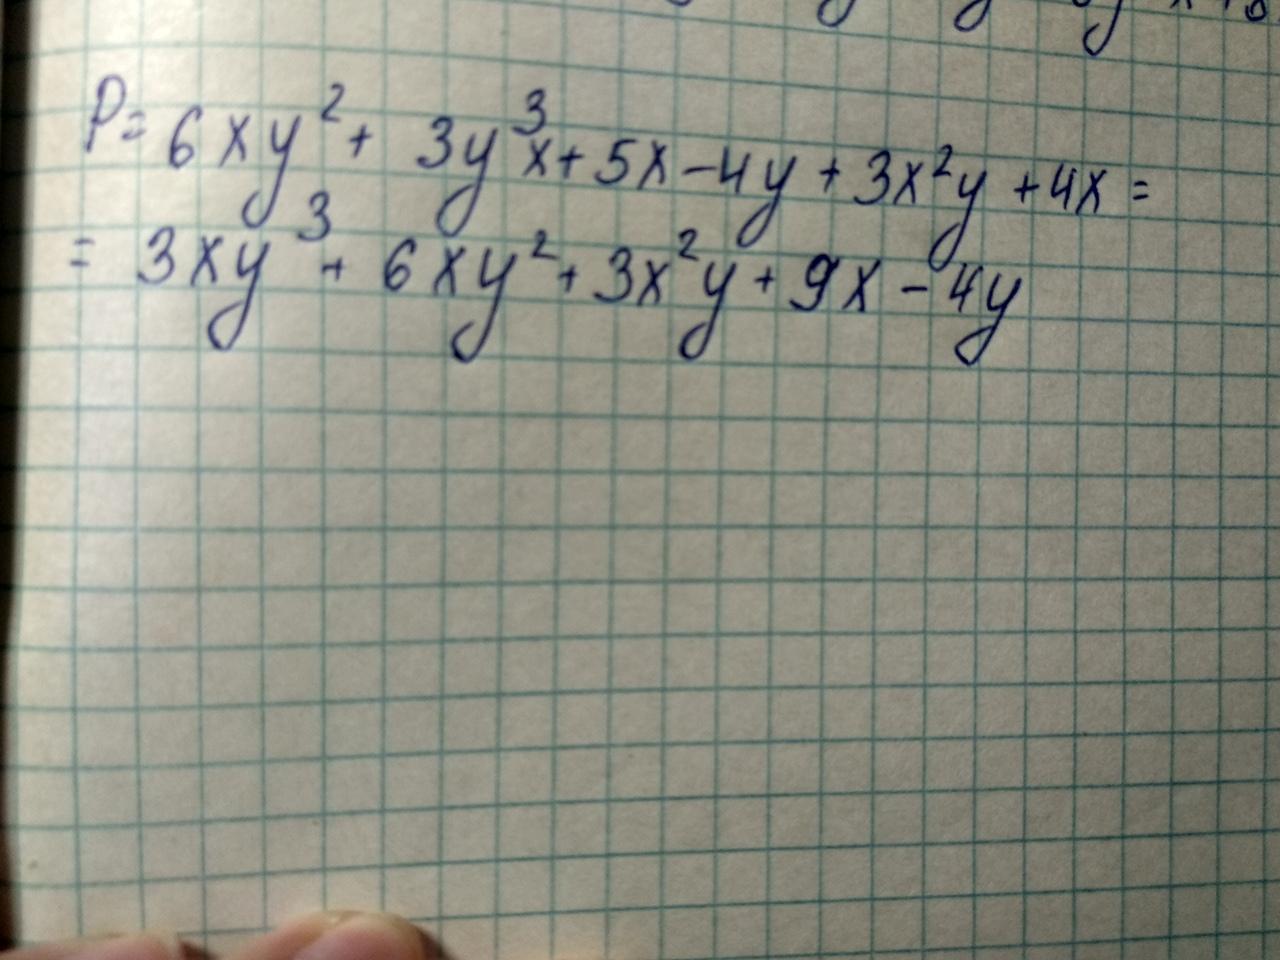 P= 6xy² + 3y³x + 5x - 4y + 3x²y + 4x =
= 3xy³ + 6xy² + 3x²y + 9x - 4y